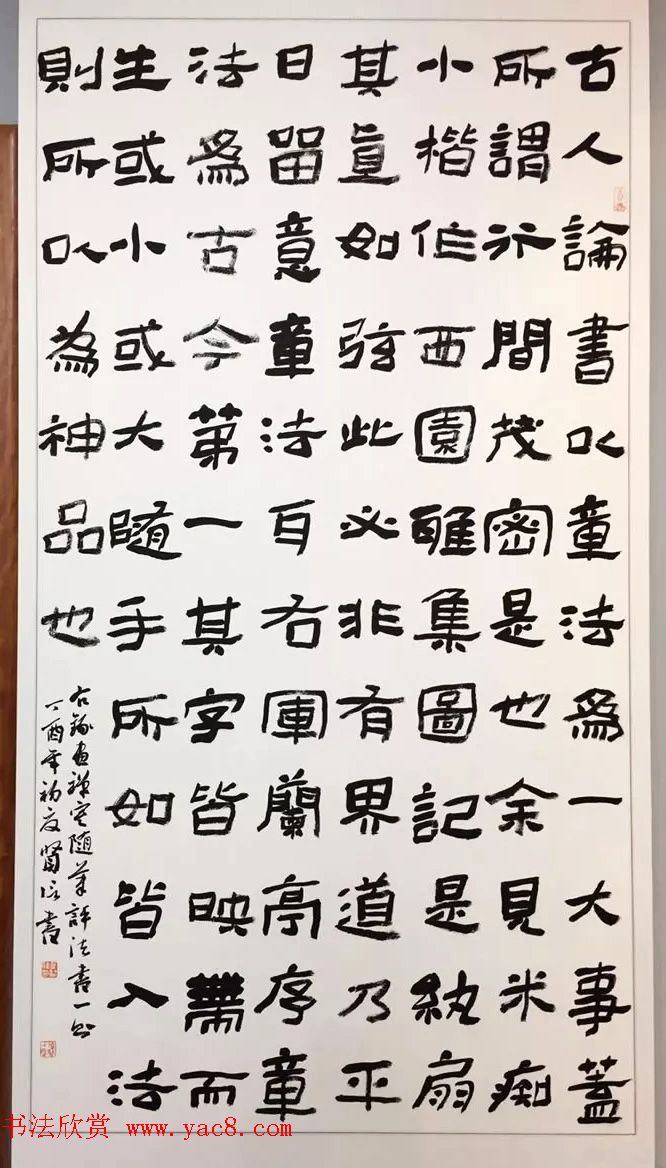 古人論書以章法爲一大事蓋
所謂行間茂密是也余見米痴
小楷作西園雅集圖記是紈扇
其直如弦此必非有界道乃平
日留意章法耳右軍蘭亭序章
法爲古今第一其字皆映帶而
生或小或大隨手所如皆入法
則所以為神品也
右録画禅室随筆評法書一則
丁酉年初夏賢書
书法欣赏 www.yac8.com